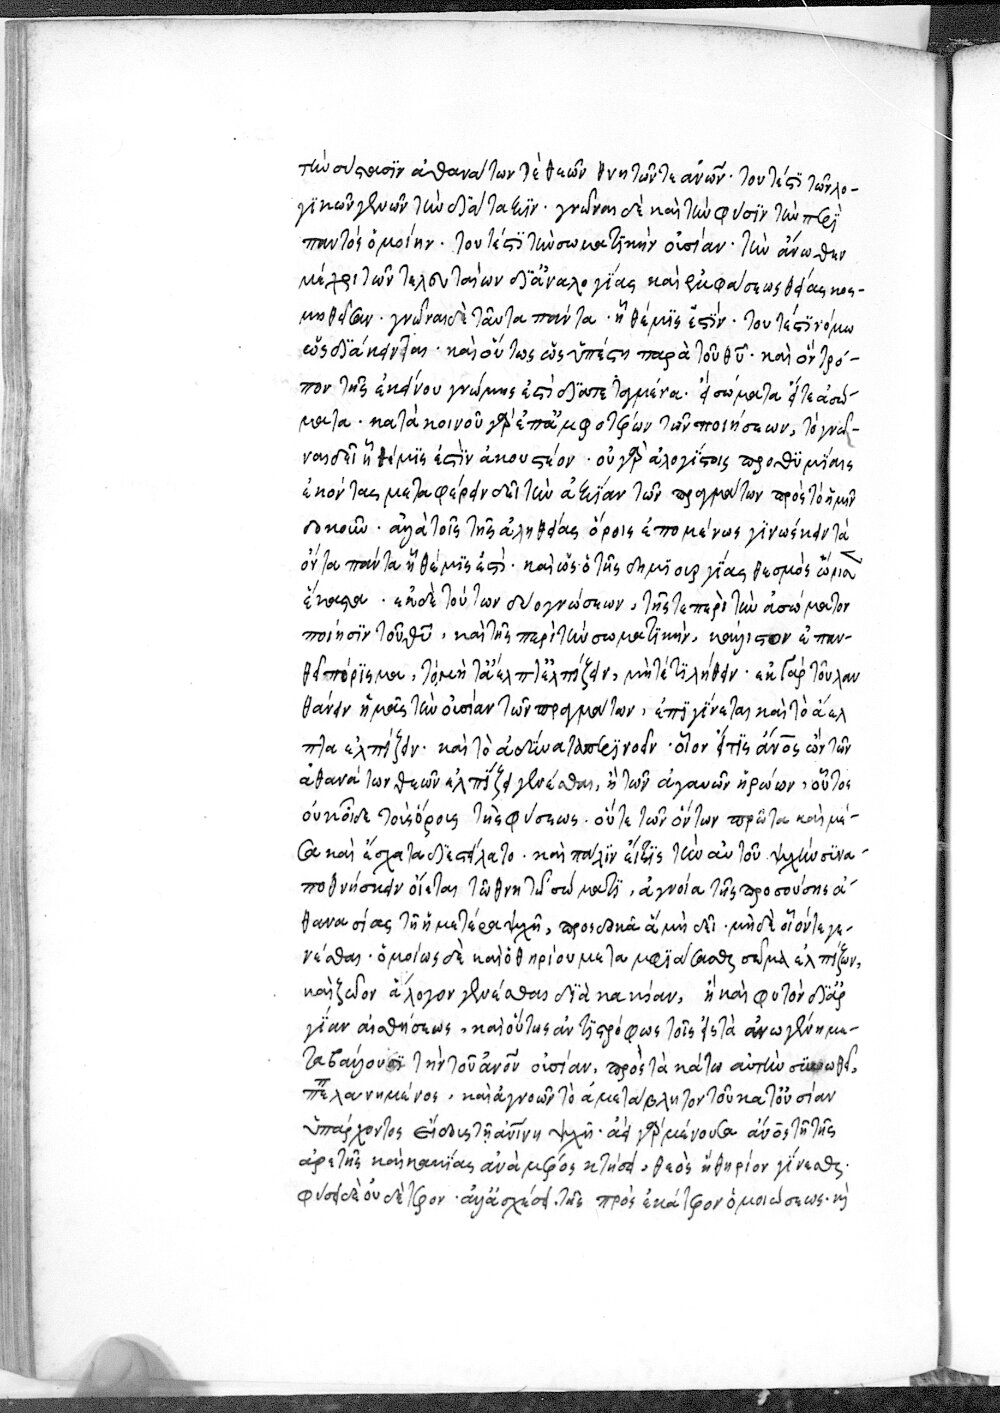 τὴν σύστασιν ἀθανάτων τὲ θεῶν θνητῶν τε ἀνῶν· τουτέστι τῶν λο-
γικῶν γενῶν τὴν διάταξιν· γνῶναι δὲ καὶ τὴν φύσιν τὴν περὶ
παντὸς ὁμοίην· τουτέστι τὴν σωματικὴν οὐσίαν· τὴν ἄνωθεν
μέχρι τῶν τελευταίων δι' ἀναλογίας καὶ ἐμφάσεως θείας κοσ-
μηθεῖσαν· γνῶναι δὲ ταῦτα πάντα· ἧ θέμις ἐστίν· τουτέστι νόμω
ὡς διάκεινται· καὶ οὕτως ὡς ὑπέστη παρὰ τοῦ θῦ· καὶ ὃν τρό-
πον τῆς ἐκείνου γνώμης ἐστὶ διατεταγμένα· εἰ σώματα εἴτε ἀσώ-
ματα· κατὰ κοινοῦ γὰρ ἐπ' ἀμφοτέρων τῶν ποιήσεων, τὸ γνῶ-
ναι δεῖ ἧ θέμις ἐστὶν ἀκουστέον· οὐ γὰρ ἀλογίστοις προθυμίαις
ἑκόντας μεταφέρειν δεῖ τὴν ἀξίαν τῶν πραγμάτων πρὸς τὸ ἡμῖν
δοκοῦν· ἀλλὰ τοῖς τῆς ἀληθείας ὅροις ἑπομένως γινώσκειν τὰ
ὄντα πάντα ἧ θέμις ἐστὶ· καὶ ὡς ὁ τῆς δημιουργίας θεσμὸς ὥρισεν
ἕκαστα· ἐκ δὲ τούτων δύο γνώσεων, τῆς τε περὶ τὴν ἀσώματον
ποίησιν τοῦ θῦ, καὶ τῆς περὶ τὴν σωματικὴν, κάλλιστον ἐπαν-
θεῖ πόρισμα, τὸ μὴ τὰ ἄελπτ' ἐλπίζειν, μήτέ τι λήθειν· ἐκ γὰρ τοῦ λαν
θάνειν ἡμᾶς τὴν οὐσίαν τῶν πραγμάτων, ἐπιγίνεται καὶ τὸ ἄελ
πτα ἐλπίζειν· καὶ τὸ ἀδύνατα περινοεῖν· οἷον εἴ τις ἄνος ὢν τῶν
ἀθανάτων θεῶν ἐλπίζει γενέσθαι, ἢ τῶν ἀγαυῶν ἡρώων, οὗτος
οὐκ οἶδε τοὺς ὅρους τῆς φύσεως· οὔτε τῶν ὄντων πρῶτα καὶ μέ-
σα καὶ ἔσχατα διεστείλατο· καὶ πάλιν εἴ τις τὴν αὑτοῦ ψυχὴν συνα-
ποθνήσκειν οἴεται τῶ θνητῶ σώματι, ἀγνοία τῆς προσούσης ἀ-
θανασίας τῆ ἡμετέρα ψυχῆ, προσδοκᾶ ἃ μὴ δεῖ· μηδὲ οἷόν τε γε-
νέσθαι· ὁμοίως δὲ καὶ ὁ θηρίου μεταμφιάσασθαι σῶμα ἐλπίζων,
καὶ ζῶον ἄλογον γενέσθαι διὰ κακίαν, ἢ καὶ φυτὸν δι' ἀρ
γίαν αἰσθήσεως, καὶ οὗτος ἀντιστρόφως τοῖς εἰς τὰ ἄνω γένη με-
ταβάλλουσι τὴν τοῦ ἀνοῦ οὐσίαν, πρὸς τὰ κάτω αὐτὴν συνωθεῖ,
πεπλανημένος, καὶ ἀγνοῶν τὸ ἀμετάβλητον τοῦ κατ' οὐσίαν
ὑπάρχοντος εἴδους τῆ ἀνίνη ψυχῆ· ἀεὶ γὰρ μένουσα ἄνος τῆ τῆς
ἀρετῆς καὶ κακίας ἀνὰ μέρος κτήσει, θεὸς ἢ θηρίον γίνεσθαι·
φύσει δὲ οὐδέτερον· ἀλλὰ σχέσει τῆς πρὸς ἑκάτερον ὁμοιώσεως· καὶ